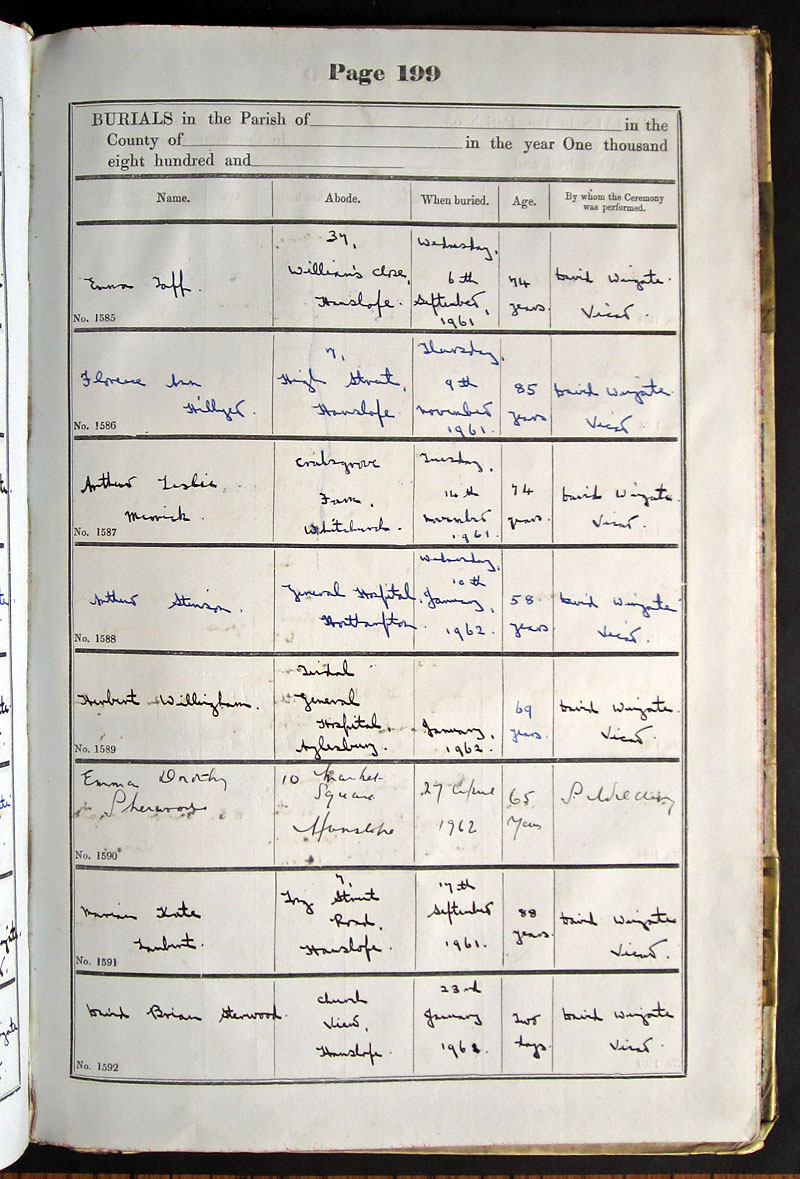 Page 199
BURIALS in the Parish of in the
County of in the year One thousand
eight hundred and
Name. Abode. When buried. Age. By whom the Ceremony was performed.
37,
William's Close,
Hanslope.
Wednesday,
6th
September,
1961
74
years.
Emma Taff.
David Wingate.
Vicar.
No. 1585
7,
High Street,
Hanslope.
Thursday,
9th
November
1961.
85
years
Florence Ann
Hillyer.
David Wingate.
Vicar
No. 1586
Crabsgrove
Farm,
Whitchurch.
Tuesday,
14th
November
1961.
74
years.
Arthur Leslie
Merrick.
David Wingate.
Vicar.
No. 1587
Arthur Stinson.
General Hospital,
Northampton
Wednesday,
10th
January,
1962.
58
years
David Wingate
Vicar.
No. 1588
Herbert Willingham.
Tindal
General
Hospital,
Aylesbury.
January,
1962.
69
years.
David Wingate.
Vicar.
No. 1589
Emma Dorothy
Sherwood
10 Market
Square
Hanslope
27 April
1962
65
Years
No. 1590
Marian Kate
Lambert.
7,
Long Street
Road,
Hanslope.
17th
September
1961.
88
years.
David Wingate
Vicar.
No. 1591
David Brian Sherwood.
Church
View,
Hanslope.
23rd
January
two
days.
David Wingate
Vicar.
No. 1592